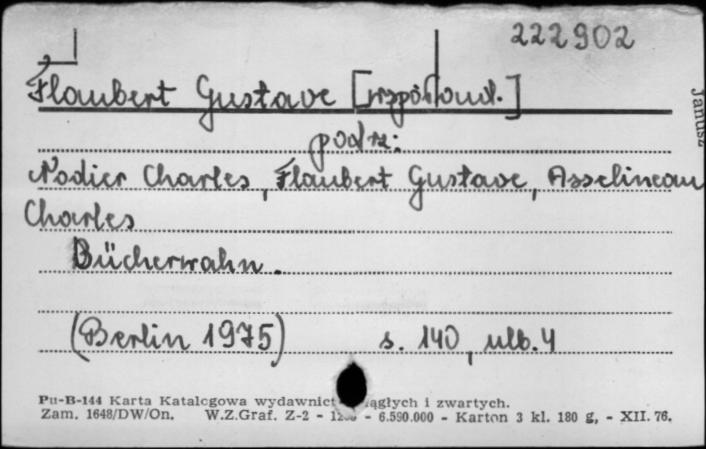 222902
Flaubert Gustave [współaut.]
Janusz
podrz:
Nodier Charles, Flaubert Gustave, Asselineau
Charles
Bücherwahn.
(Berlin 1975) s. 140, nlb. 4
Pu-B-144 Karta Katalogowa wydawnict ciągłych i zwartych.
Zam. 1648/DW/On. W.Z.Graf. Z-2 - - 6.590.000 - Karton 3 kl. 180 g, - XII. 76.